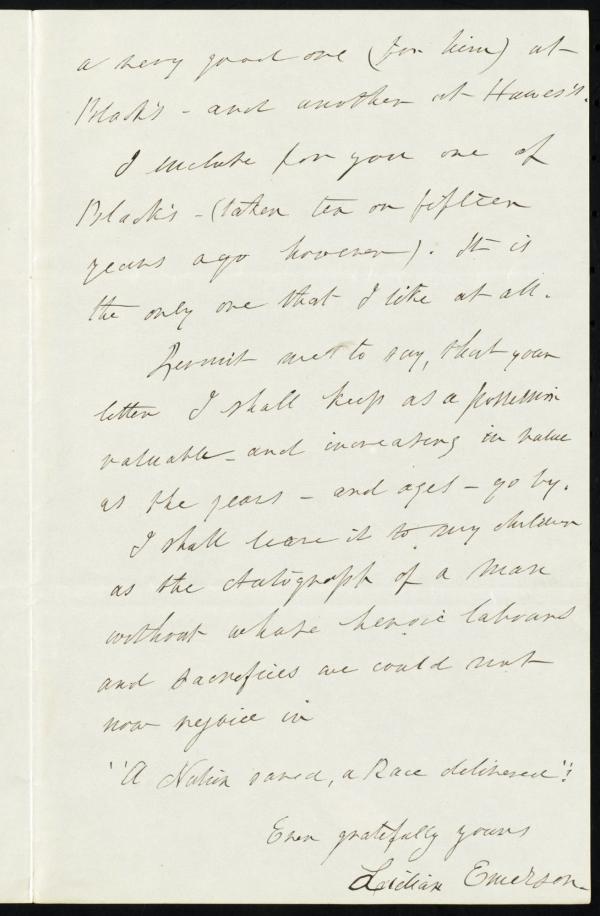 a very good one (for him) at
Black's - and another at Hawes's.
I include for you one of
Black's - (taken ten or fifteen
years ago however). It is
the only one that I like at all.
Permit me to say, that your
letter I shall keep as a possession
valuable - and increasing in value
as the years - and ages - go by.
I shall leave it to my children
as the Autograph of a Man
without whose heroic labours
and sacrifices we could not
now rejoice in
"A Nation saved, a Race delivered"!
Ever gratefully yours
Lidian Emerson.